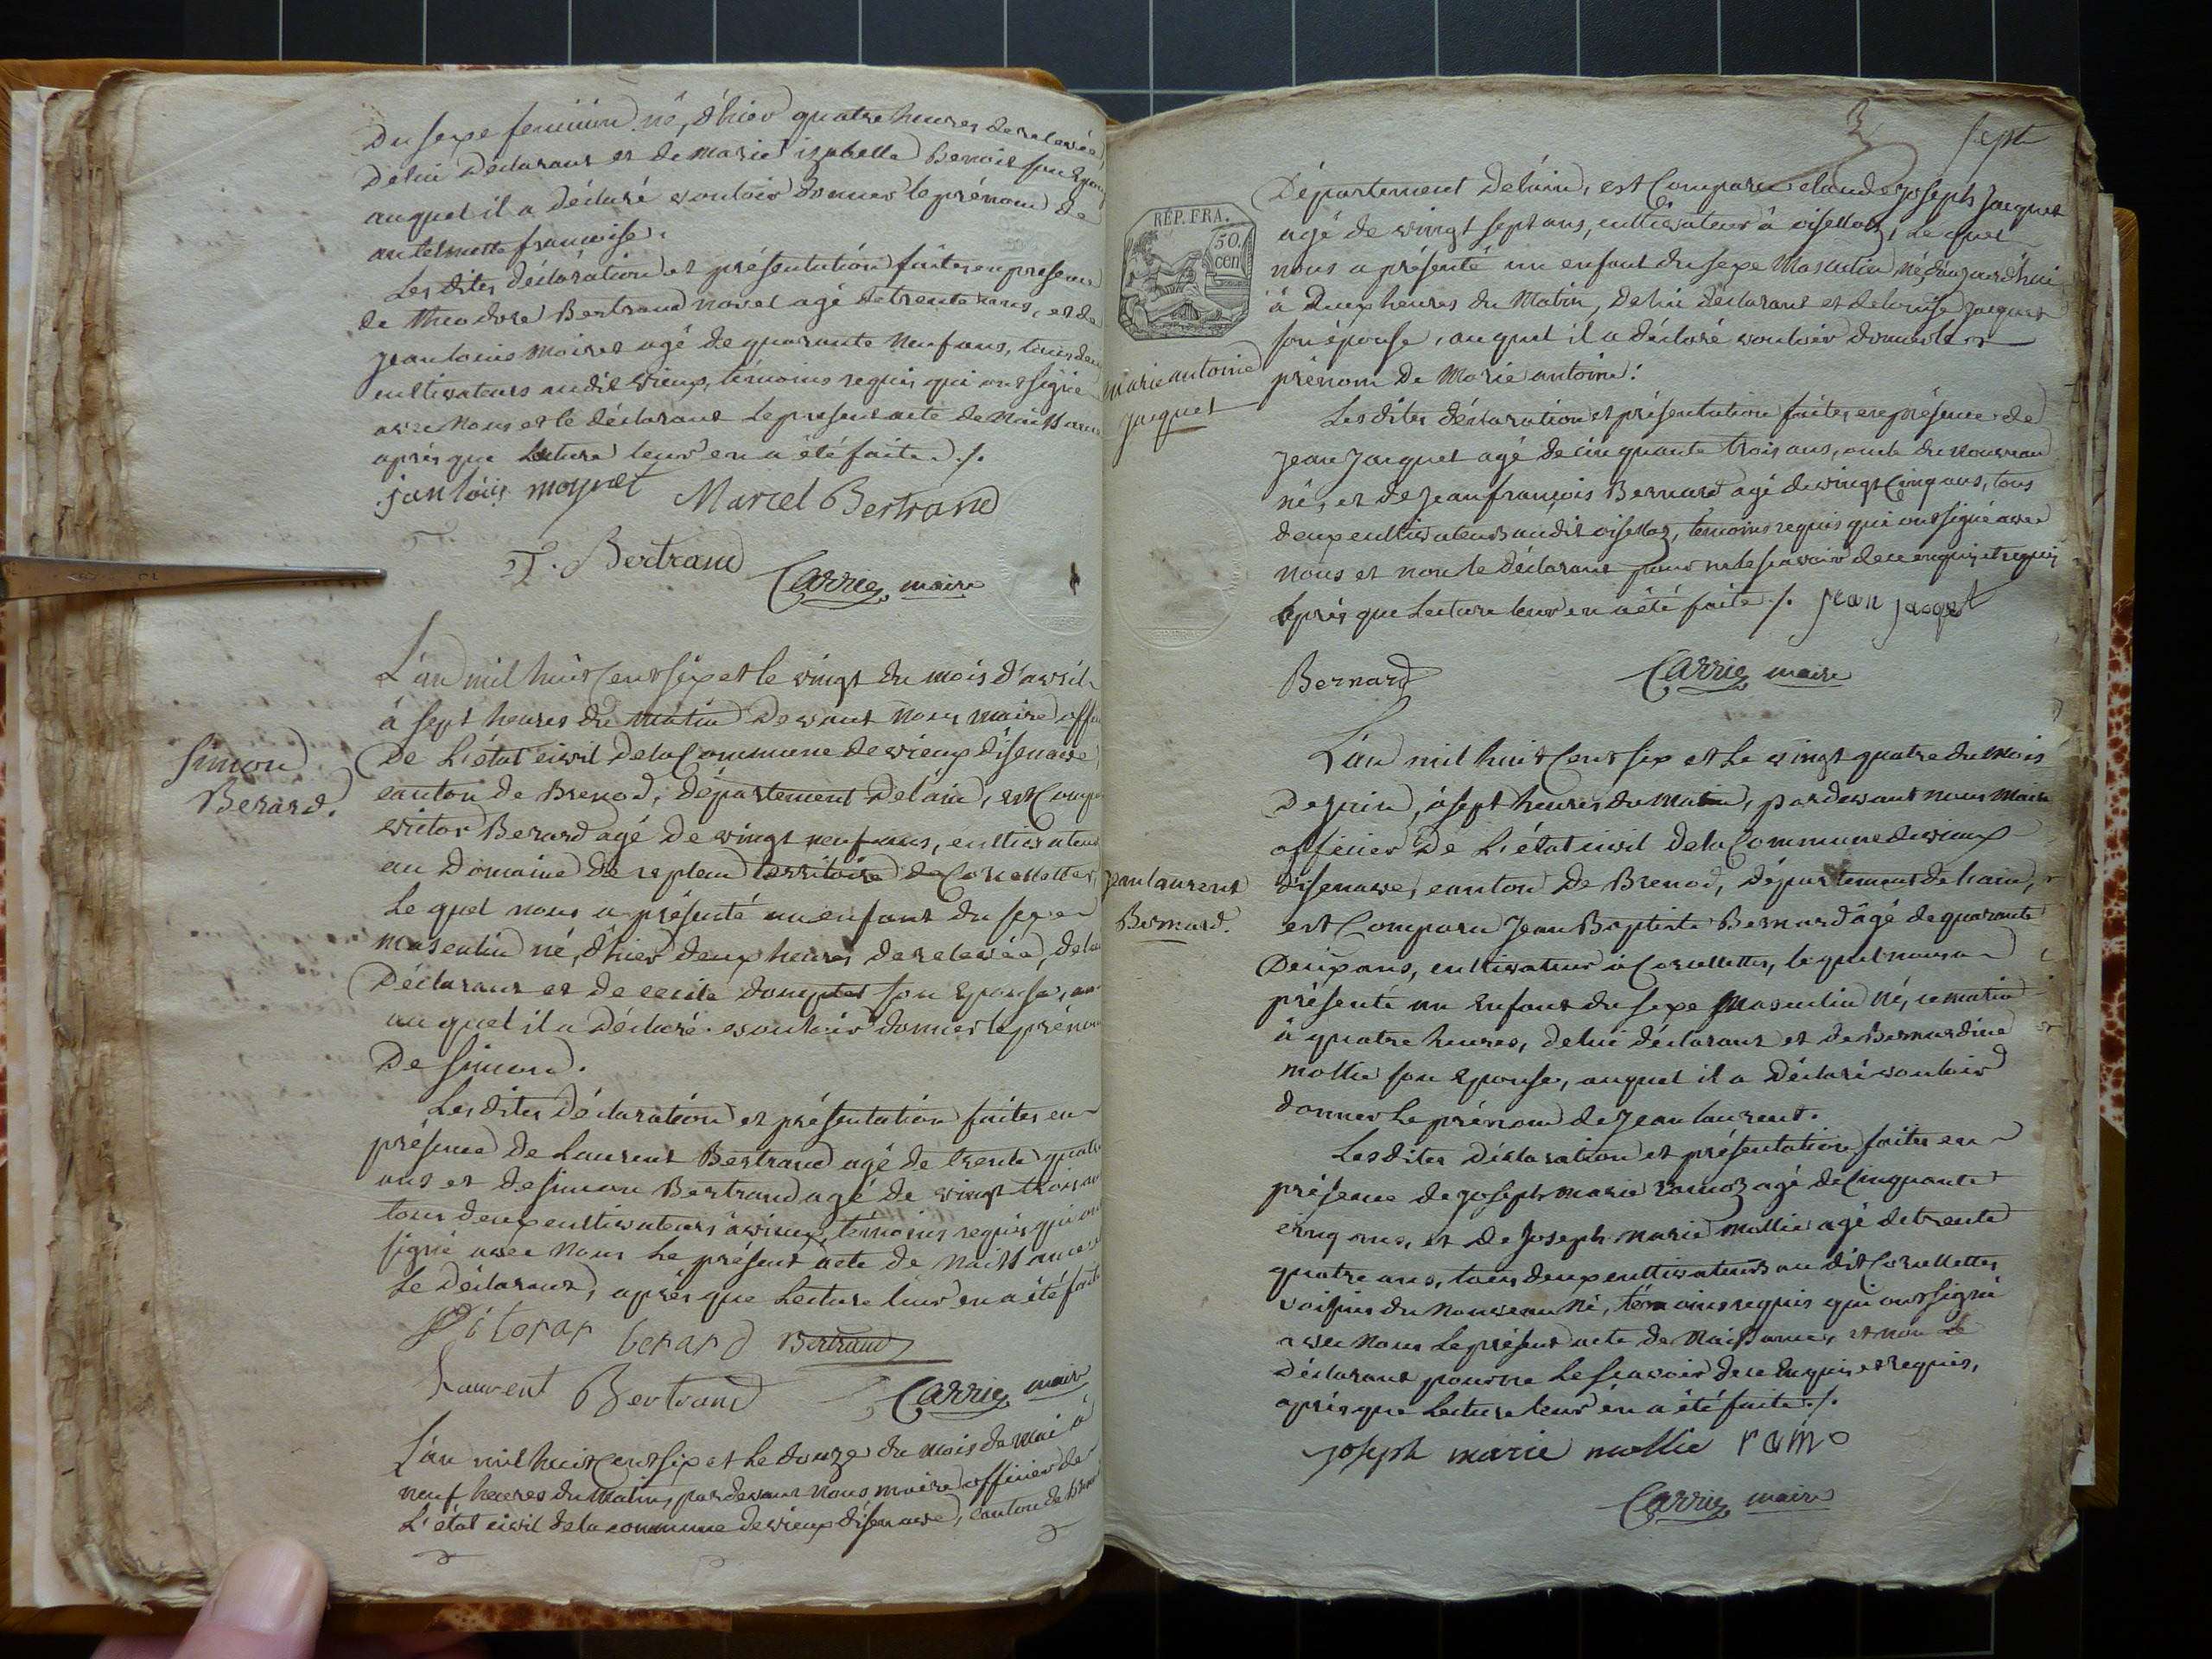 Du sexe feminin né, d'hier quatre heures de relevée
De lui Declarant et de marie izabelle Benoit son Epou
auquel il a déclaré vouloir donner le prénom de
antelmette francoise.
Les dites déclaration et présentation faites en presence
de theodore Bertrand novel agé de trente ans, et de
jean louis moiret agé de quarante neuf ans, tous deux
cultivateurs audit vieux, témoins requis qui ont signé
avec nous et le déclarant le present acte de naissance
après que lecture leur en a été faite ./.
jan loüis moynet Marcel Bertrand
T. Bertrand Carrier maire
Simon
Berard.
L'an mil huit Cent six et le vingt du mois d'avril
à sept heures du matin Devant nous maire offi
De L'état civil de la Commune de vieux d'isenave
canton de Brenod, département De lain, est Compa
victor Berard agé de vingt neuf ans, cultivateur
au Domaine de replan territoire de Corcelettes
Le quel nous a présenté un enfant du sexe
masculin né, d'hier deux heures de relevée, de lui
Déclarant et de cecile dompter son Epouse, au
au quel il a Déclaré vouloir donner le prénom
De simon.
Les dites Déclaration et présentation faites en
présence De Laurent Bertrand agé de trente quatre
ans et de simon Bertrand agé de vingt trois an
tous deux cultivateurs à vieux, témoins requis qui on
signé avec nous Le présent acte de naissance
Le Déclarant, après que Lecture leur en a été faite
Vitorar berard Bertrand
Laurent Bertrand Carrier maire
L'an mil huit Cent six et Le douze du mois de mai à
neuf heures du matin, pardevant nous maire officier de
L'état civil de la commune de vieux d'isenave, canton de bren
3 sept
RÉP. FRA.
50.
cen
Département de lain, est Comparu claude joseph Jacquet
agé de vingt sept ans, cultivateur à oisellaz, Le quel
nous a présenté un enfant du sexe Masculin né, daujourd'hui
à Deux heures du Matin, de lui déclarant et de louise jacquet
son épouse, auquel il a déclaré vouloir donner le
prénom De Marie antoine.
marie antoine
jacquet
Les dites déclaration et présentation faites en présence de
Jean Jacquet agé de cinquante trois ans, oncle du nouveau
né, et de Jean françois Bernard agé de vingt Cinq ans, tous
deux cultivateurs audit oisellaz, temoins requis qui ont signé avec
nous et non le déclarant pour ne le scavoir de ce enquis et requis
après que Lecture leur en a été faite ./. jean jacqet
Bernard Carrier maire
L'an mil huit Cent six et Le vingt quatre du mois
De juin, à sept heures du Matin, par devant nous Maire
officier De L'état civil de la Commune de vieux
d'isenave, canton De Brenod, département de lain,
jean laurent
Bernard.
est Comparu Jean Baptiste Bernard âgé de quarante
Deux ans, cultivateur à Corcellettes, lequel nous a
présenté un Enfant du sexe Masculin né, ce matin
à quatre heures, de lui déclarant et de Bernardine
mollie son Epouse, auquel il a Déclaré vouloir
donner Le prénom de Jean laurent.
Les dites Déclaration et présentation faites en
présence de joseph marie ramoz agé de Cinquante
cinq ans, et de Joseph marie mollie agé de trente
quatre ans, tous deux cultivateurs au dit Corcellettes
voisins du nouveau né, témoins requis qui ont signé
avec nous Le présent acte de Naissance, et non Le
Déclarant pour ne Le scavoir de ce Enquis et requis,
après que Lecture leur en a été faite ./.
joseph marie mollie ramo
Carrier maire